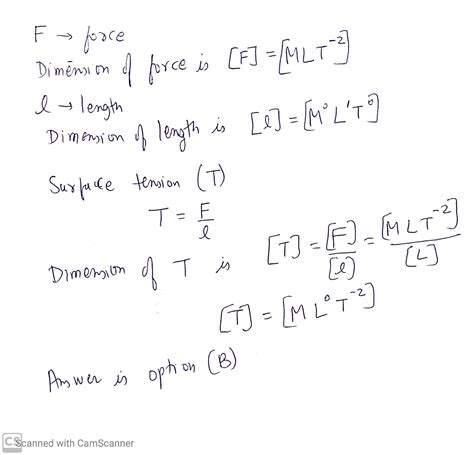 F → force
Dimension of force is [F] = [MLT⁻²]
l → length
Dimension of length is [l] = [M⁰L¹T⁰]
Surface tension (T)
T = F/l
Dimension of T is [T] = [F]/[l] = [MLT⁻²]/[L]
[T] = [ML⁰T⁻²]
Answer is option (B)
CS Scanned with CamScanner